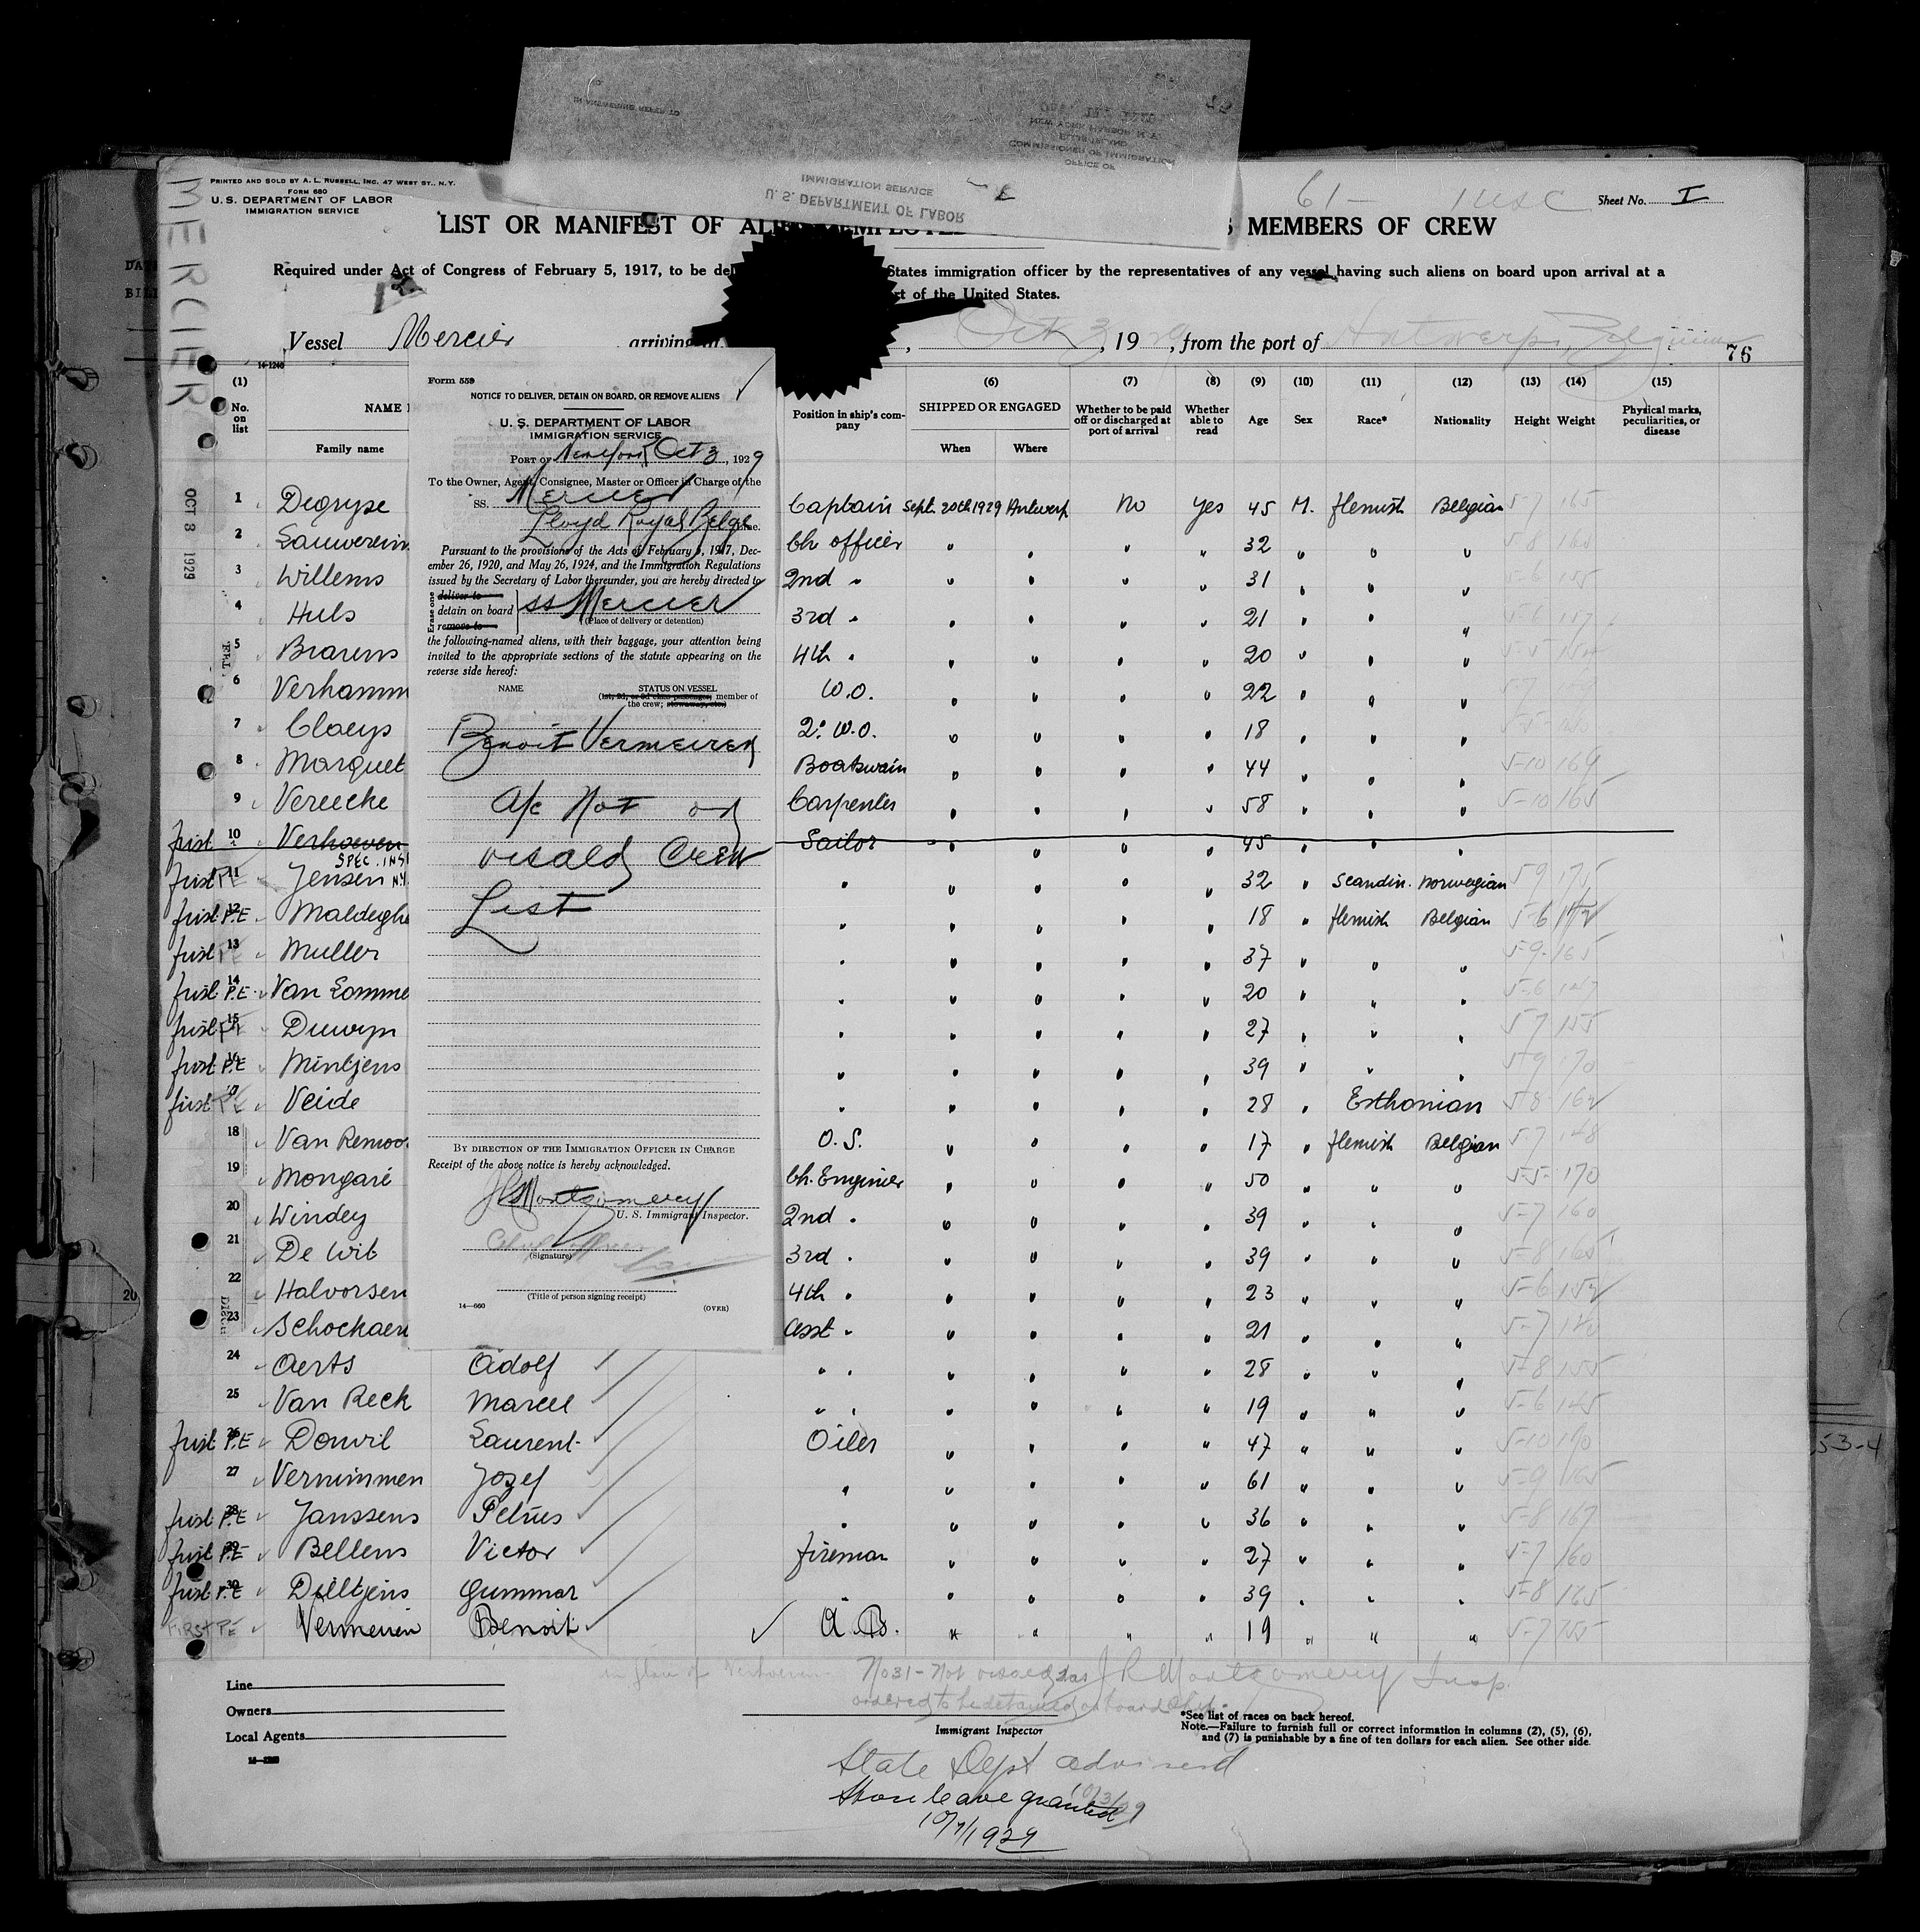 IN ANSWERING REFER TO
NEW YORK HARBOR, N.Y.
ELLIS ISLAND
COMMISSIONER OF IMMIGRATION
OFFICE OF
IMMIGRATION SERVICE
U. S. DEPARTMENT OF LABOR
MERCIER
PRINTED AND SOLD BY A. L. RUSSELL, INC. 47 WEST ST., N.Y.
FORM 680
U. S. DEPARTMENT OF LABOR
IMMIGRATION SERVICE
61-
Sheet No. I
LIST OR MANIFEST OF MEMBERS OF CREW
Required under Act of Congress of February 5, 1917, to be States immigration officer by the representatives of any vessel having such aliens on board upon arrival at a
of the United States.
Vessel Mercier arriving Oct 3, 1929, from the port of Antwerp, Belgium
76
14-1240
(1) (6) (7) (8) (9) (10) (11) (12) (13) (14) (15)
No. on list NAME Position in ship's company SHIPPED OR ENGAGED Whether to be paid off or discharged at port of arrival Whether able to read Age Sex Race* Nationality Height Weight Physical marks, peculiarities, or disease
Family name When Where
OCT 3 1929
Form 559
NOTICE TO DELIVER, DETAIN ON BOARD, OR REMOVE ALIENS
U. S. DEPARTMENT OF LABOR
IMMIGRATION SERVICE
PORT OF New York Oct 3, 1929
To the Owner, Agent, Consignee, Master or Officer in Charge of the
SS. Mercier
Lloyd Royal Belge Line.
Pursuant to the provisions of the Acts of February 5, 1917, Dec-
ember 26, 1920, and May 26, 1924, and the Immigration Regulations
issued by the Secretary of Labor thereunder, you are hereby directed to
Erase one
deliver to
detain on board SS Mercier
remove to (Place of delivery or detention)
the following-named aliens, with their baggage, your attention being
invited to the appropriate sections of the statute appearing on the
reverse side hereof:
NAME STATUS ON VESSEL
(1st, 2d, or 3d class passenger, member of
the crew; stowaway, etc.)
Benoit Vermeiren
a/c Not on
visaed Crew
List
BY DIRECTION OF THE IMMIGRATION OFFICER IN CHARGE
Receipt of the above notice is hereby acknowledged.
J R Montgomery
U. S. Immigrant Inspector.
(Signature)
(Title of person signing receipt)
14—660 (OVER)
1 Degryse Captain Sept. 20th 1929 Antwerp No Yes 45 M. flemish Belgian 5-7 165
2 Lauwereins Ch officer " " " " 32 " " "
3 Willems 2nd " " " " " 31 " " "
4 Huls 3rd " " " " " 21 " " "
5 Brarens 4th " " " " " 20 " " "
6 Verhamm W.O. " " " " 22 " " "
7 Claeys 2: W.O. " " " " 18 " " "
8 Marquet Boatswain " " " " 44 " " " 5-10 169
9 Vereecke Carpenter " " " " 58 " " " 5-10 165
first 10 Verhoeven Sailor " " " " 45 " " "
SPEC. INS
first PE 11 Jensen N.Y. " " " " " 32 " Scandin. Norwegian 5-9 175
first P.E 12 Maldeghe " " " " " 18 " flemish Belgian 5-6
first PE 13 Muller " " " " " 37 " " " 5-9 165
first P.E 14 Van Lomme " " " " " 20 " " " 5-6 147
first PE 15 Duwyn " " " " " 27 " " " 5-7 155
first P.E 16 Mintjens " " " " " 39 " " " 5-9 170
first PE 17 Veide " " " " " 28 " Esthonian 5-8 162
18 Van Remoo O.S. " " " " 17 " flemish Belgian 5-7 148
19 Mongaré Ch. Enginier " " " " 50 " " " 5-5 170
20 Windey 2nd " " " " " 39 " " " 5-7 160
21 De Wit 3rd " " " " " 39 " " " 5-8 165
22 Halvorsen 4th " " " " " 23 " " " 5-6 152
23 Schockaer Asst " " " " " 21 " " " 5-7
24 Aerts Adolf " " " " " " 28 " " " 5-8 155
25 Van Reck Marcel " " " " " " 19 " " " 5-6 145
first P.E 26 Donvil Laurent Oiler " " " " 47 " " " 5-10
27 Vernimmen Jozef " " " " " 61 " " " 5-9 165
first P.E 28 Janssens Petrus " " " " " 36 " " " 5-8 167
first P.E 29 Bellens Victor fireman " " " " 27 " " " 5-7 160
first P.E 30 Dilltjens Gummar " " " " " 39 " " " 5-8 165
FIRST PE Vermeiren Benoit A.B. " " " " 19 " " " 5-7 155
in place of Verhoeven No 31 - Not visaed was J R Montgomery Insp.
ordered to be detained on board ship.
Line
Owners
Local Agents
Immigrant Inspector
*See list of races on back hereof.
Note.—Failure to furnish full or correct information in columns (2), (5), (6),
and (7) is punishable by a fine of ten dollars for each alien. See other side.
State Dept advised
10/3/29
Shore leave granted
10/4/1929
20
53-4